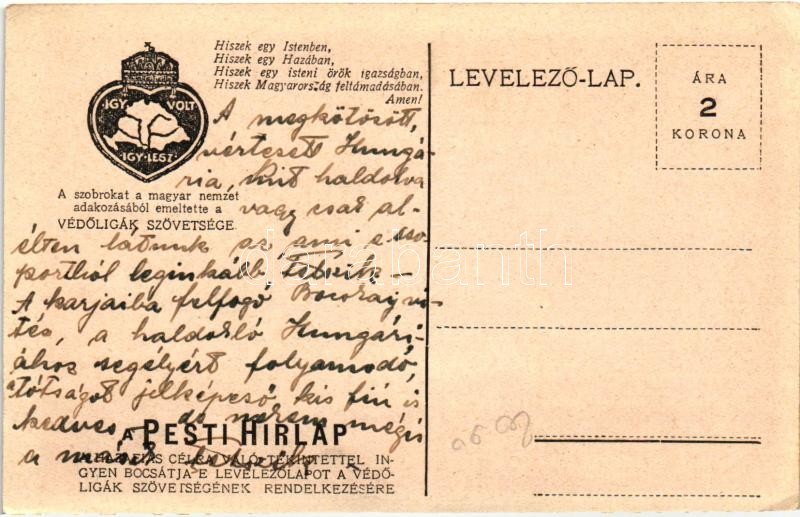 Hiszek egy Istenben,
Hiszek egy Hazában,
Hiszek egy isteni örök igazságban,
Hiszek Magyarország feltámadásában.
Amen!
IGY VOLT
IGY LESZ
A szobrokat a magyar nemzet
adakozásából emeltette a
VÉDŐLIGÁK SZÖVETSÉGE.
A megkötözött,
vértezett Hungá-
ria, kit haldokolva
vagy csak al-
élten látunk az ami e cso-
portból leginkább tetszik –
A karjaiba felfogó vi-
téz, a haldokló Hungári-
ához segélyért folyamodó,
tótságot jelképező kis fiú is
kedves, de nekem mégis
a tetszik –
A PESTI HIRLAP
HAZAFIAS CÉLRA VALÓ TEKINTETTEL IN-
GYEN BOCSÁTJA E LEVELEZŐLAPOT A VÉDŐ-
LIGÁK SZÖVETSÉGÉNEK RENDELKEZÉSÉRE
LEVELEZŐ-LAP.
ÁRA
2
KORONA
darabanth